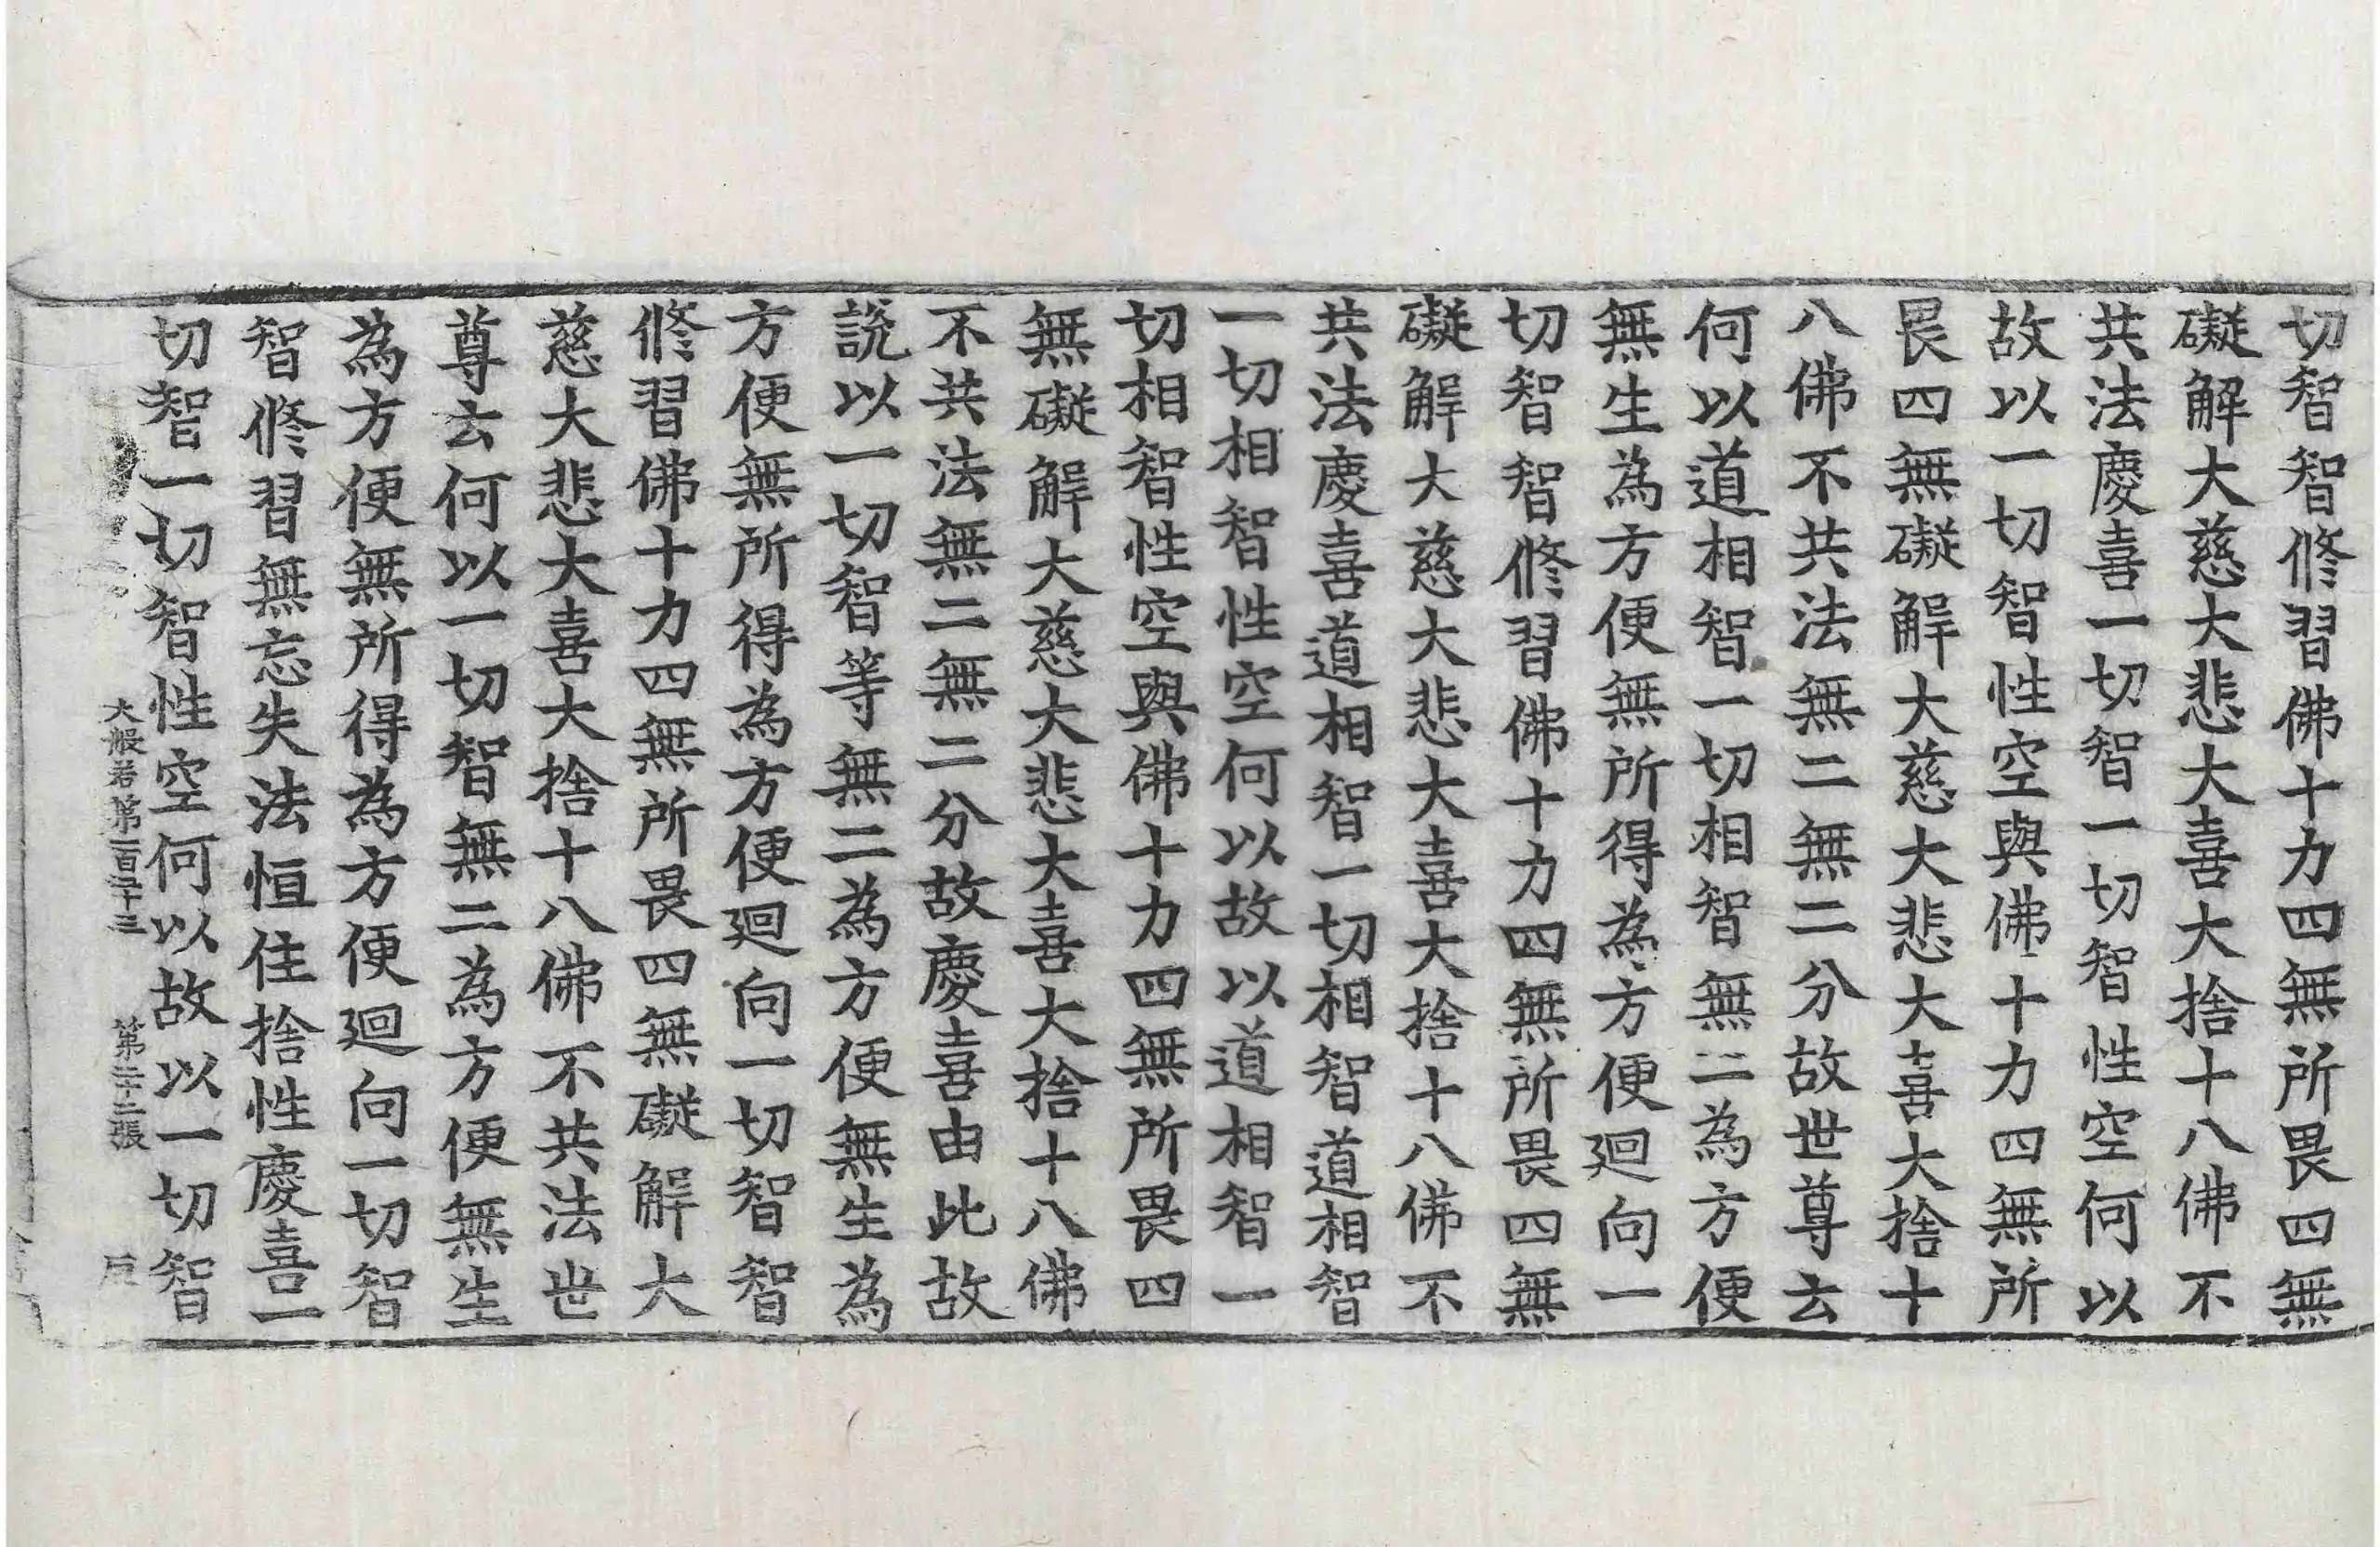 切智智修習佛十力四無所畏四無
礙解大慈大悲大喜大捨十八佛不
共法慶喜一切智一切智性空何以
故以一切智性空與佛十力四無所
畏四無礙解大慈大悲大喜大捨十
八佛不共法無二無二分故世尊云
何以道相智一切相智無二為方便
無生為方便無所得為方便迴向一
切智智修習佛十力四無所畏四無
礙解大慈大悲大喜大捨十八佛不
共法慶喜道相智一切相智道相智
一切相智性空何以故以道相智一
切相智性空與佛十力四無所畏四
無礙解大慈大悲大喜大捨十八佛
不共法無二無二分故慶喜由此故
說以一切智等無二為方便無生為
方便無所得為方便迴向一切智智
修習佛十力四無所畏四無礙解大
慈大悲大喜大捨十八佛不共法世
尊云何以一切智無二為方便無生
為方便無所得為方便迴向一切智
智修習無忘失法恒住捨性慶喜一
切智一切智性空何以故以一切智
大般若第一百二十三 第二十二張